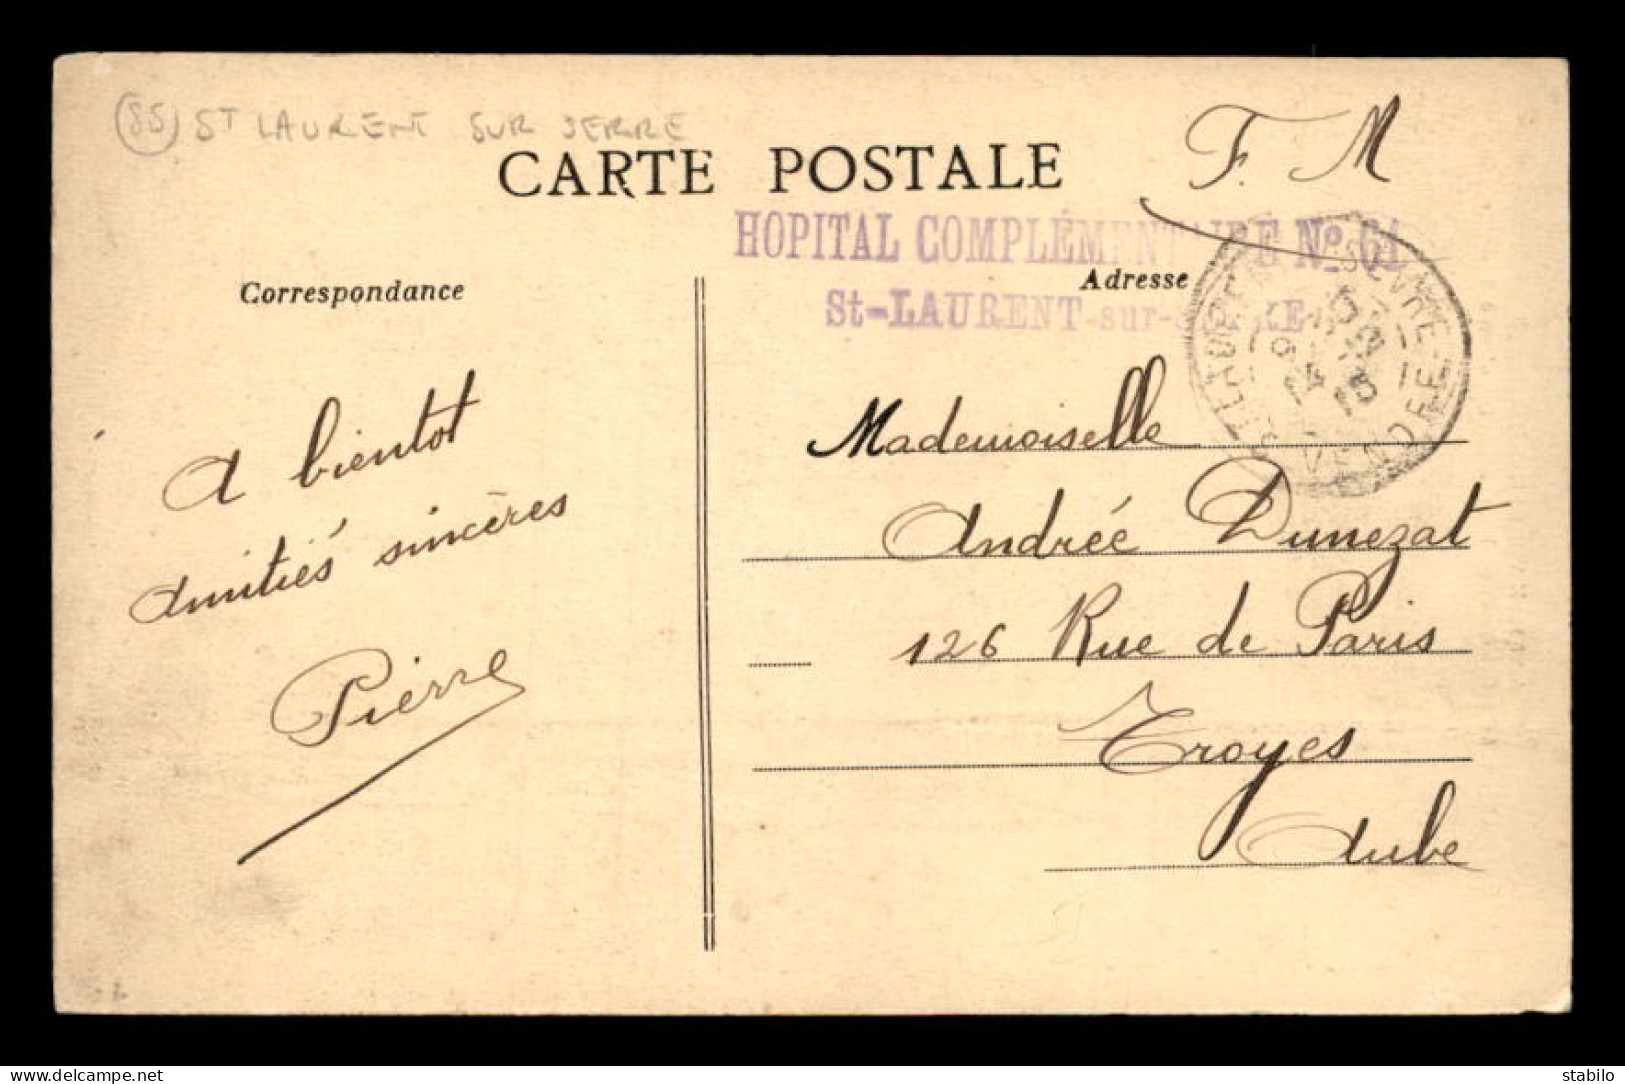 (85) ST LAURENT SUR SERRE
F. M
CARTE POSTALE
HOPITAL COMPLÉMENTAIRE No. 61
St-LAURENT-sur-SÈVRE
Correspondance
Adresse
ST LAURENT S. SEVRE
VENDEE
A bientot
Amitiés sincères
Pierre
Mademoiselle
Andrée Dunezat
126 Rue de Paris
Troyes
Aube
delcampe.net
stabilo